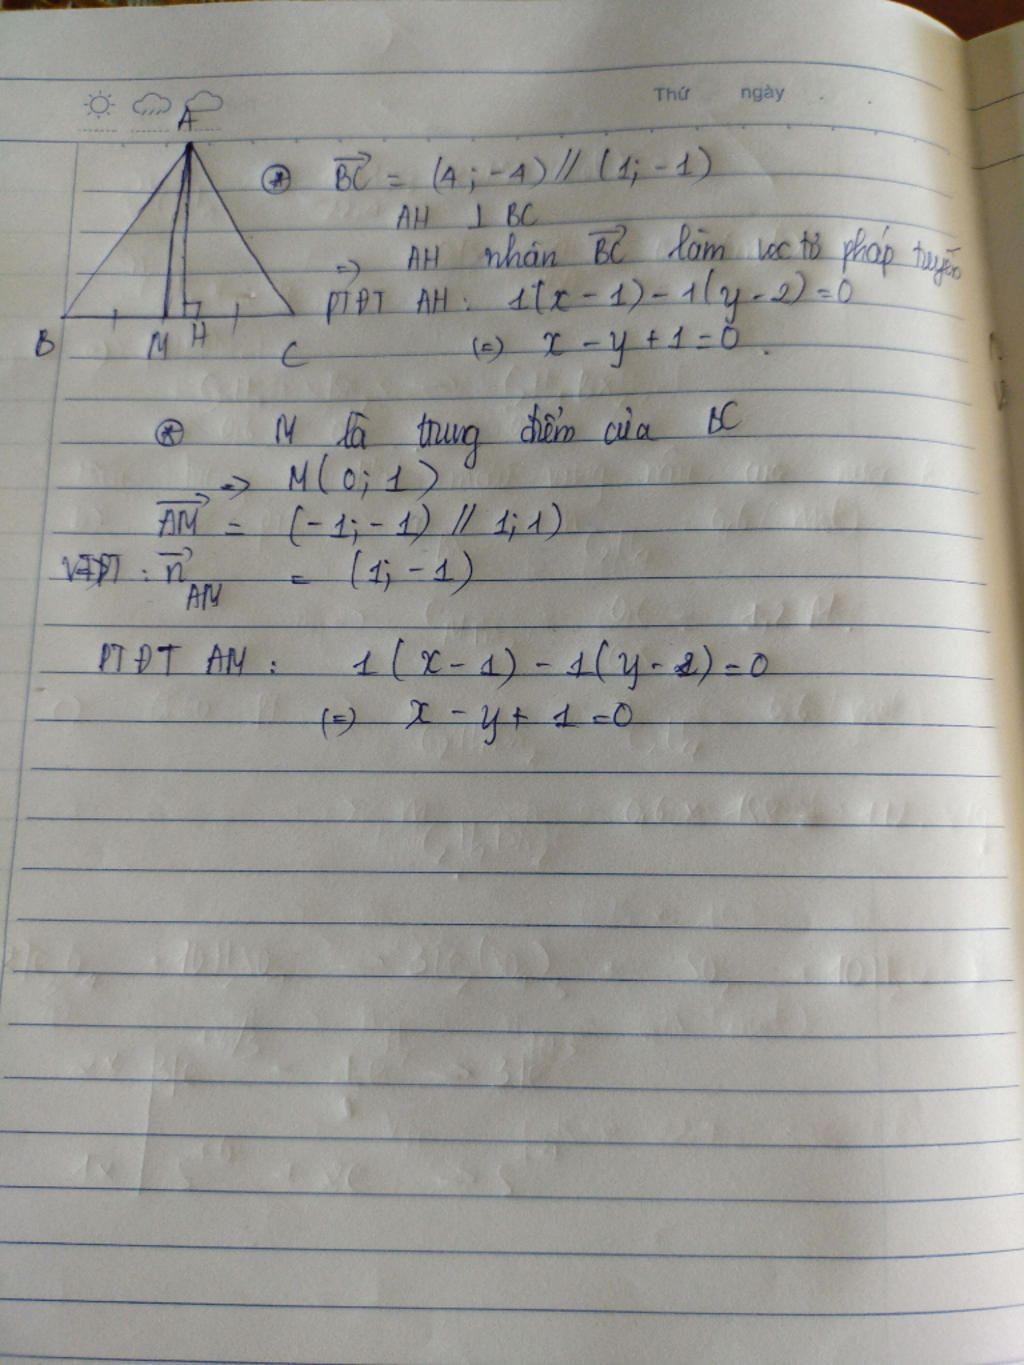 Thứ ngày
A
⊛ BC = (4; -4) // (1; -1)
AH ⊥ BC
=> AH nhận BC làm vec tơ pháp tuyến
PTĐT AH: 1(x - 1) - 1(y - 2) = 0
B M H C
(=) x - y + 1 = 0.
⊛ M là trung điểm của BC
=> M(0; 1)
AM = (-1; -1) // 1; 1)
: n AM = (1; -1)
PTĐT AM: 1(x - 1) - 1(y - 2) = 0
(=) x - y + 1 = 0